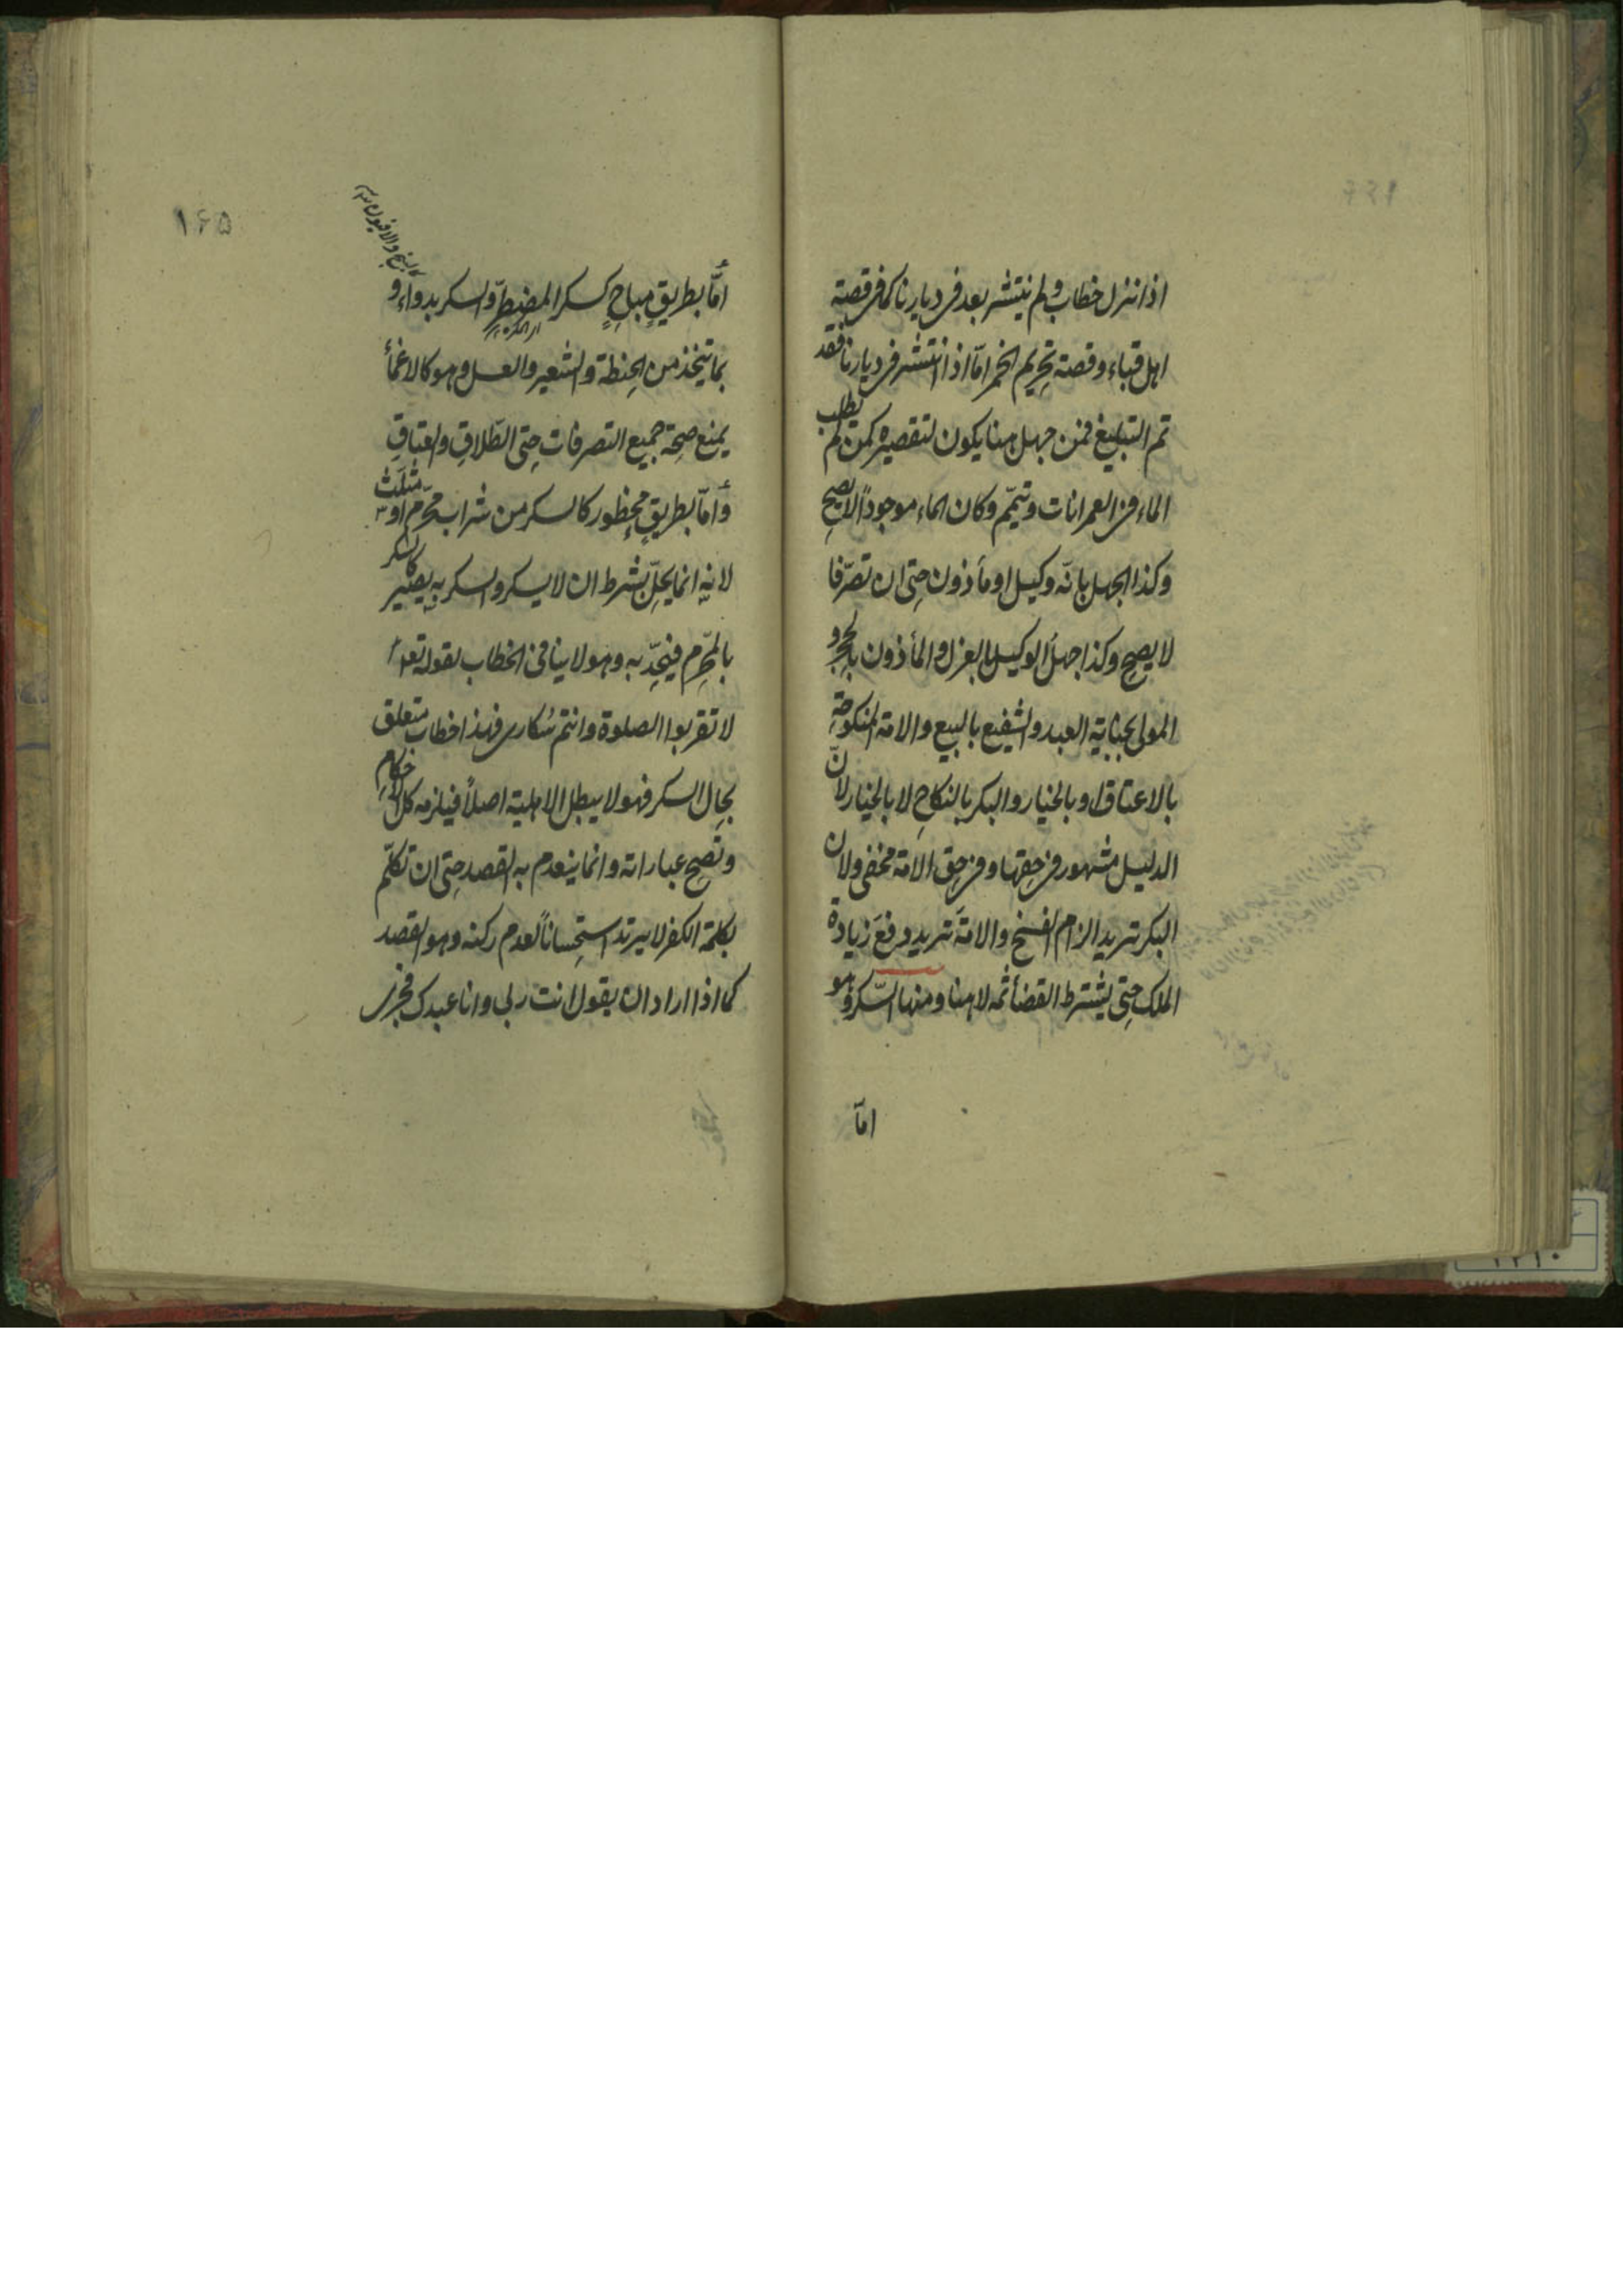 اذا نزل خطاب ولم ينتشر بعد فى ديارنا كما فى قصة
اهل قباء وقصة تحريم الخمر امّا اذا انتشر فى ديارنا فقد
تم التبليغ فمن جهل هنا يكون لتقصيره كمن لم يطلب
الماء فى العمرانات وتيمّم وكان الماء موجوداً لا يصح
وكذا الجهل بانّه وكيل او مأذون حتى ان تصرّفا
لا يصح وكذا جهل الوكيل بالعزل والمأذون بالحجر و
المولى بجناية العبد والشفيع بالبيع والامة المنكوحة
بالاعتاق او بالخيار والبكر بالنكاح لا بالخيار لانّ
الدليل مشهور فى حقها وفى حق الامة مخفى ولان
البكر تريد الزام الفسخ والامةَ تريد رفعَ زيادة
الملك حتى يشترط القضأ ثمه لا هنا ومنها السّكر وهو
امّا
۱۶۵
امّا بطريقٍ مباحٍ كسكر المضطرّ والسكر بدواء و
بما يتخذ من الحنطة والشعير والعسل وهو كالاغمأ
يمنع صحة جميع التصرفات حتى الطّلاق والعتاق
وامّا بطريقٍ محظور كالسكر من شراب محرّم او مثلّث
لانه انما يحلّ بشرط ان لا يسكر والسكر به يصير كالسكر
بالمحرّم فيحدّ به وهو لا ينافى الخطاب لقوله تع
لا تقربوا الصلوة وانتم سُكارى فهذا خطاب متعلق
بحال السكر فهو لا يبطل الاهلية اصلاً فيلزمه كل الاحكام
وتصح عباراته وانما ينعدم به القصد حتى ان تكلّم
بكلمة الكفر لا يرتد استحساناً لعدم ركنه وهو القصد
كما اذا اراد ان يقول انت ربى وانا عبدك فجرى